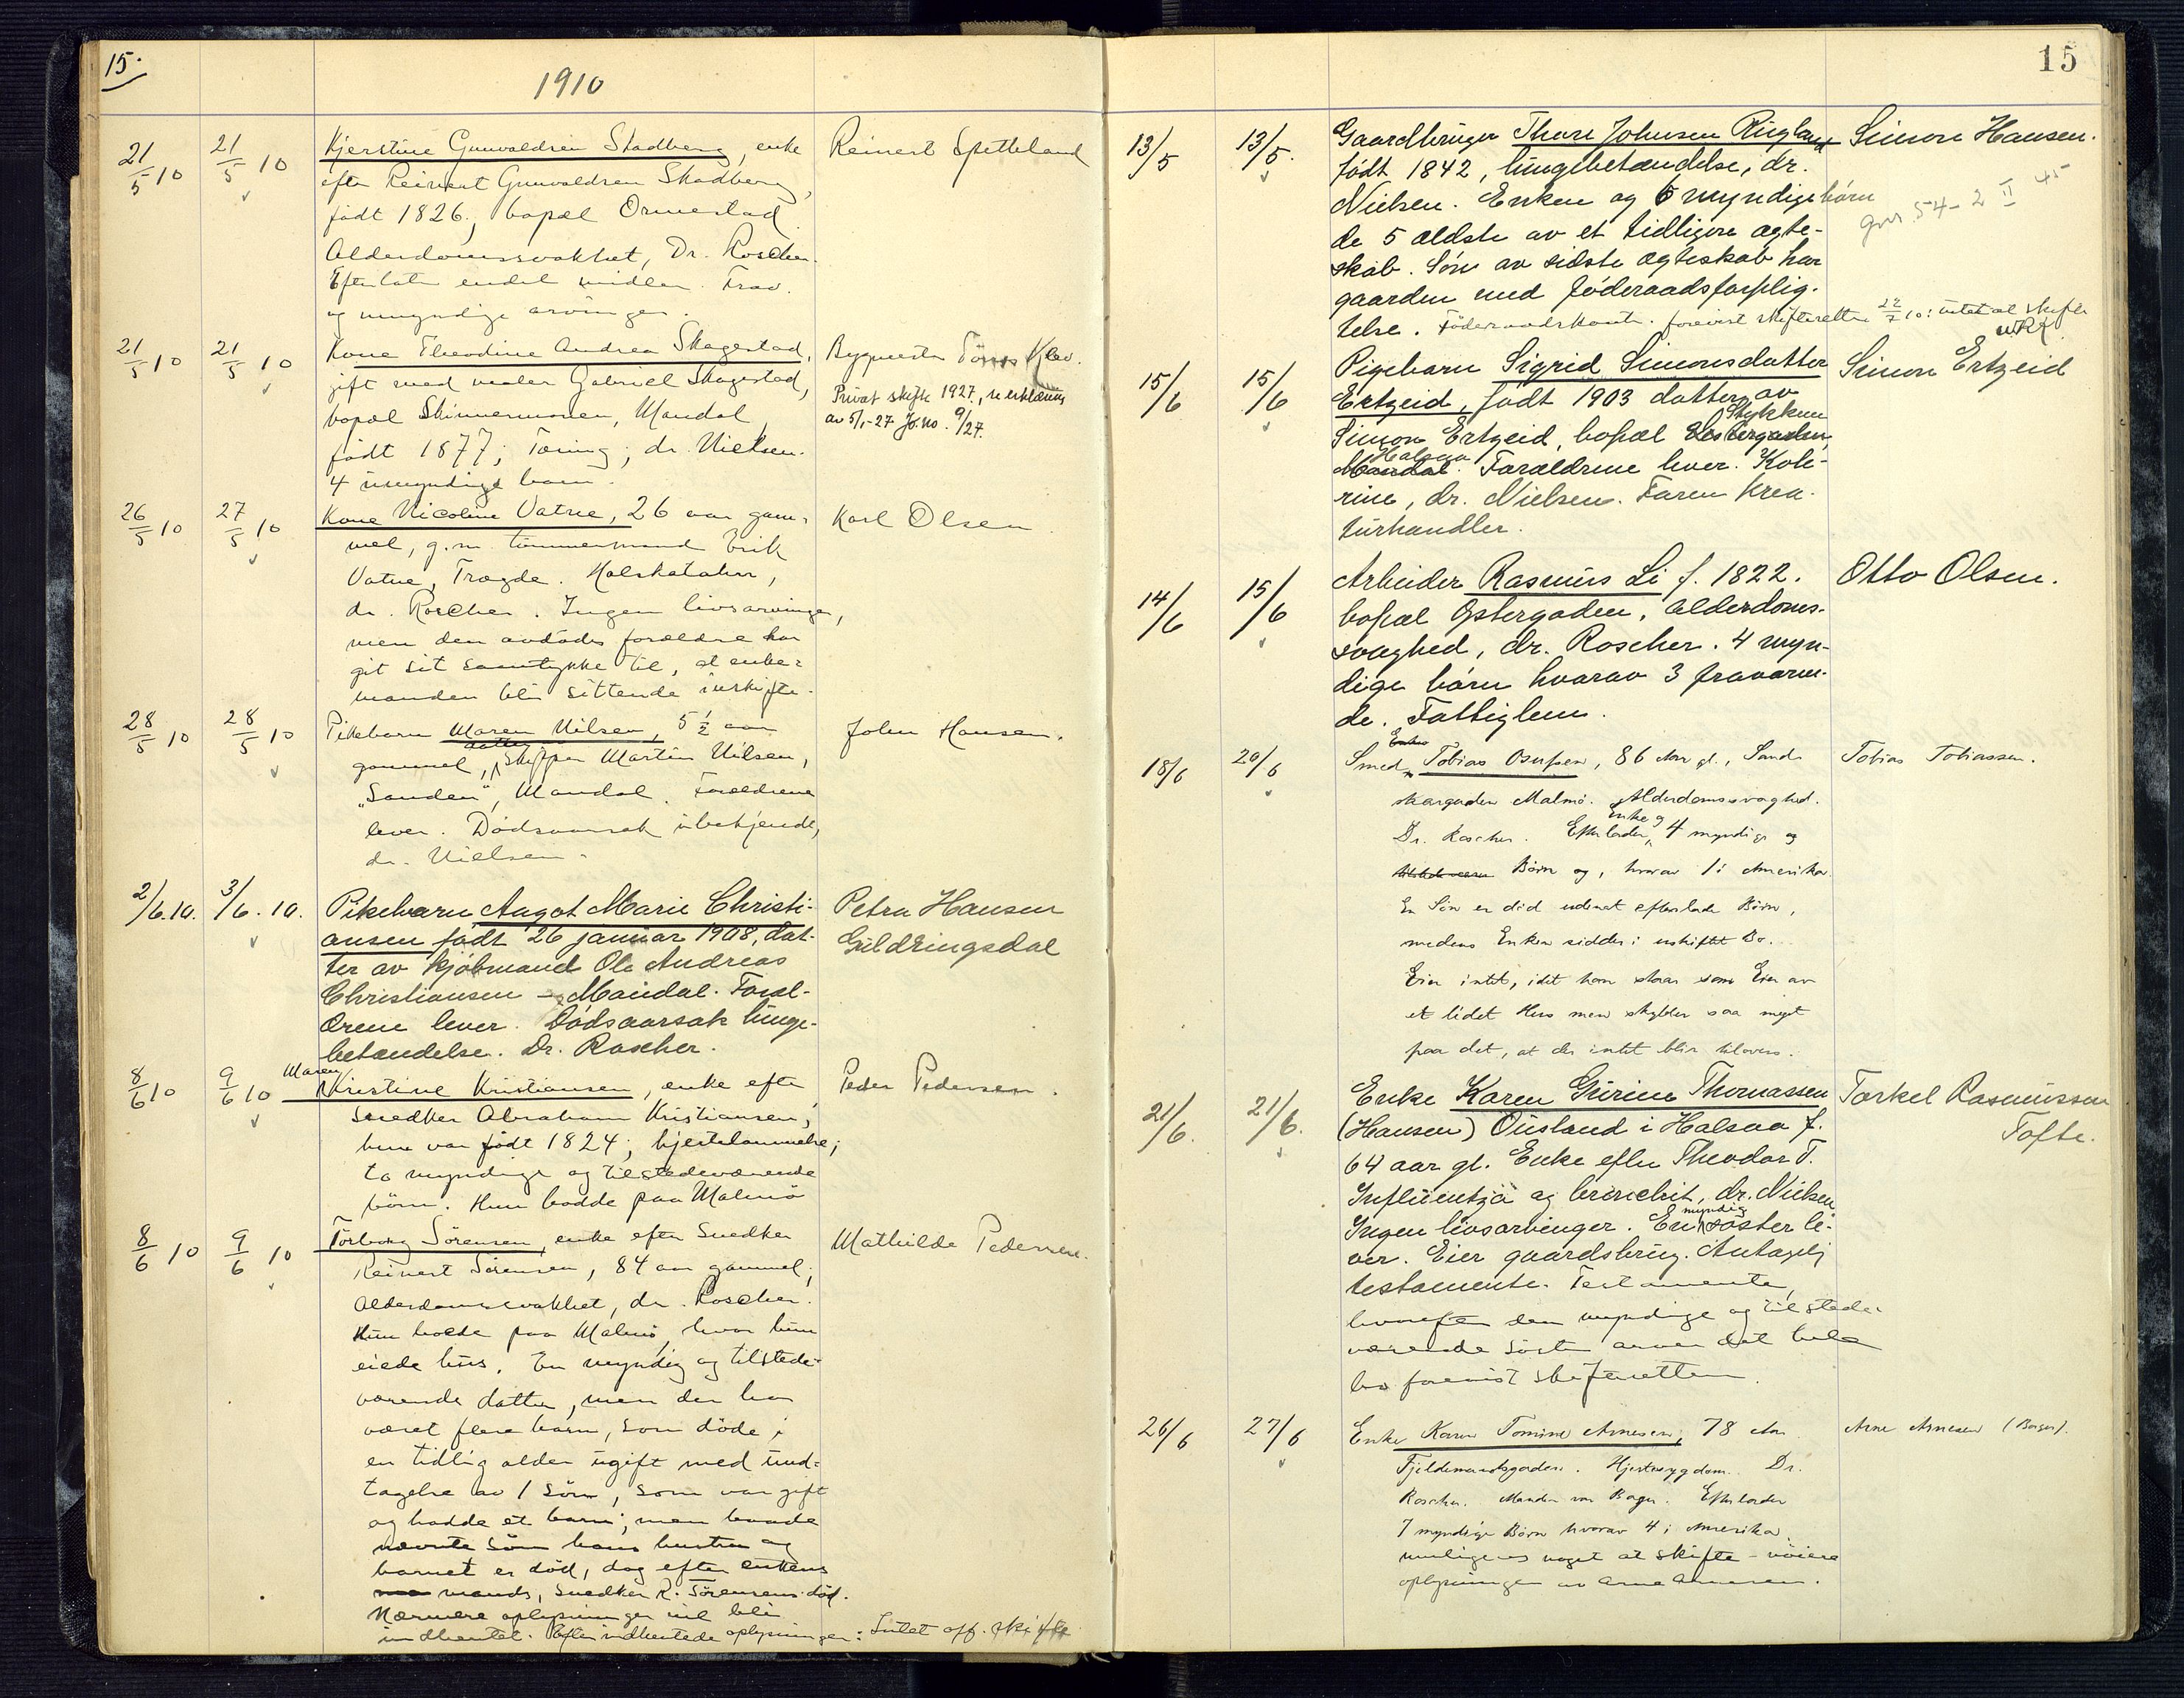 15.
1910
21/5 10
21/5 10
Kjerstine Gunvaldsen Skadberg, enke
efter Reinert Gunvaldsen Skadberg,
født 1826; bopæl Ormestad
Alderdomssvakhet, Dr. Roscher.
Efterlot endel midler. Frav.
og umyndige arvinger.
Reinert Spetteland
21/5 10
21/5 10
Kone Theodine Andrea Skagestad,
gift med maler Gabriel Skagestad,
bopæl Skinnermoen, Mandal
født 1877; Tæring; dr. Nielsen.
4 umyndige barn.
Bygmester Tönnes Klev.
Privat skifte 1927, se erklæring
av 5/1-27 Jr. no. 9/27.
26/5 10
27/5 10
Kone Nicoline Vatne, 26 aar gam-
mel, g.m. tömmermand Erik
Vatne, Tregde. Halskatahr,
dr. Roscher. Ingen livsarvinger,
men den avdödes forældre har
git sit samtykke til, at enke-
manden blir sittende i uskifte.
Karl Olsen
28/5 10
28/5 10
Pikebarn Maren Nilsen, 5 1/2 aar
gammel, datter Skipper Martin Nilsen,
"Sanden", Mandal. Forældrene
lever. Dödsaarsak ubekjendt,
dr. Nielsen.
John Hansen.
2/6.10.
3/6.10.
Pikebarn Aagot Marie Christi-
ansen født 26 januar 1908, dat-
ter av kjøbmand Ole Andreas
Christiansen - Mandal. Foræl-
drene lever. Dødsaarsak lunge-
betændelse. Dr. Roscher.
Petra Hansen
Guldringsdal
8/6 10
9/6 10
Maren
Kristine Kristiansen, enke efter
Snedker Abraham Kristiansen,
hun var født 1824; hjertelammelse;
to myndige og tilstedeværende
börn. Hun bodde paa Malmö
Peder Pedersen.
8/6 10
9/6 10
Torborg Sörensen, enke efter Snedker
Reinert Sörensen, 84 aar gammel,
Alderdomssvakhet, dr. Roscher.
Hun bodde paa Malmö, hvor hun
eiede hus. En myndig og tilstede-
værende datter, men der har
været flere barn, som döde i
en tidlig alder ugift med und-
tagelse av 1 sön, som var gift
og hadde et barn; men baade
nævnte sön hans hustru og
barnet er död, dog efter enkens
mands, Snedker R. Sörensens död.
Nærmere oplysninger vil bli
indhentet. Efter indhentede oplysninger: Intet off. skifte
Mathilde Pedersen.
15
13/5
13/5.
Gaardbruger Thore Johnsen Ringland
født 1842, lungebetændelse, dr.
Nielsen. Enken og 6 myndige børn
de 5 ældste av et tidligere ægte-
skab. Søn av sidste ægteskab har
gaarden med føderaadsforplig-
telse. Föderaadskontr. forevist skifteretten 22/7 10: intet at skifte
Simon Hansen.
gnr 54-2 II 45
15/6
15/6
Pigebarn Sigrid Simonsdatter
Ertzeid, født 1903 datter av
Simon Ertzeid, bopæl Stykkun
Halsaa Mandal. Forældrene lever. Kole-
rine, dr. Nielsen. Faren krea-
turhandler.
Simon Ertzeid
14/6
15/6
Arbeider Rasmus Li f. 1822.
bopæl Østergaden, alderdoms-
svaghed, dr. Roscher. 4 myn-
dige børn hvorav 3 fraværen-
de. Fattiglem.
Otto Olsen.
18/6
20/6
Smed Tobias Osufsen, 86 Aar gl., Sand-
skargaden Malmö. Alderdomssvaghed.
Dr. Roscher. Efterlader Enke og 4 myndige og
Börn og, hvorav 1 i Amerika.
En Sön er död uden at efterlade Börn,
medens Enken sidder i uskiftet Bo.
Eier intet, idet han staar som Eier av
et lidet Hus men skylder saa meget
paa det, at der intet blir tilovers.
Tobias Tobiassen.
21/6.
21/6.
Enke Karen Gurine Thomassen
(Hansen) Øusland i Halsaa f.
64 aar gl. Enke efter Theodor T.
Influentza og bronchit, dr. Nielsen
Ingen livsarvinger. En myndig søster le-
ver. Eier gaardsbrug. Antagelig
testamente. Testamente,
hvorefter den myndige og tilstede-
værende söster arver det hele
bo forevist skifteretten.
Torkel Rasmussen
Tofte.
26/6
27/6
Enke Karen Tomine Arnesen, 78 Aar
Fjeldemandsgaden. Hjertesygdom. Dr.
Roscher. Manden var Bager. Efterlader
7 myndige Börn hvorav 4 i Amerika.
muligens noget at skifte - nöiere
oplysninger av Arne Arnesen.
Arne Arnesen (Bager).